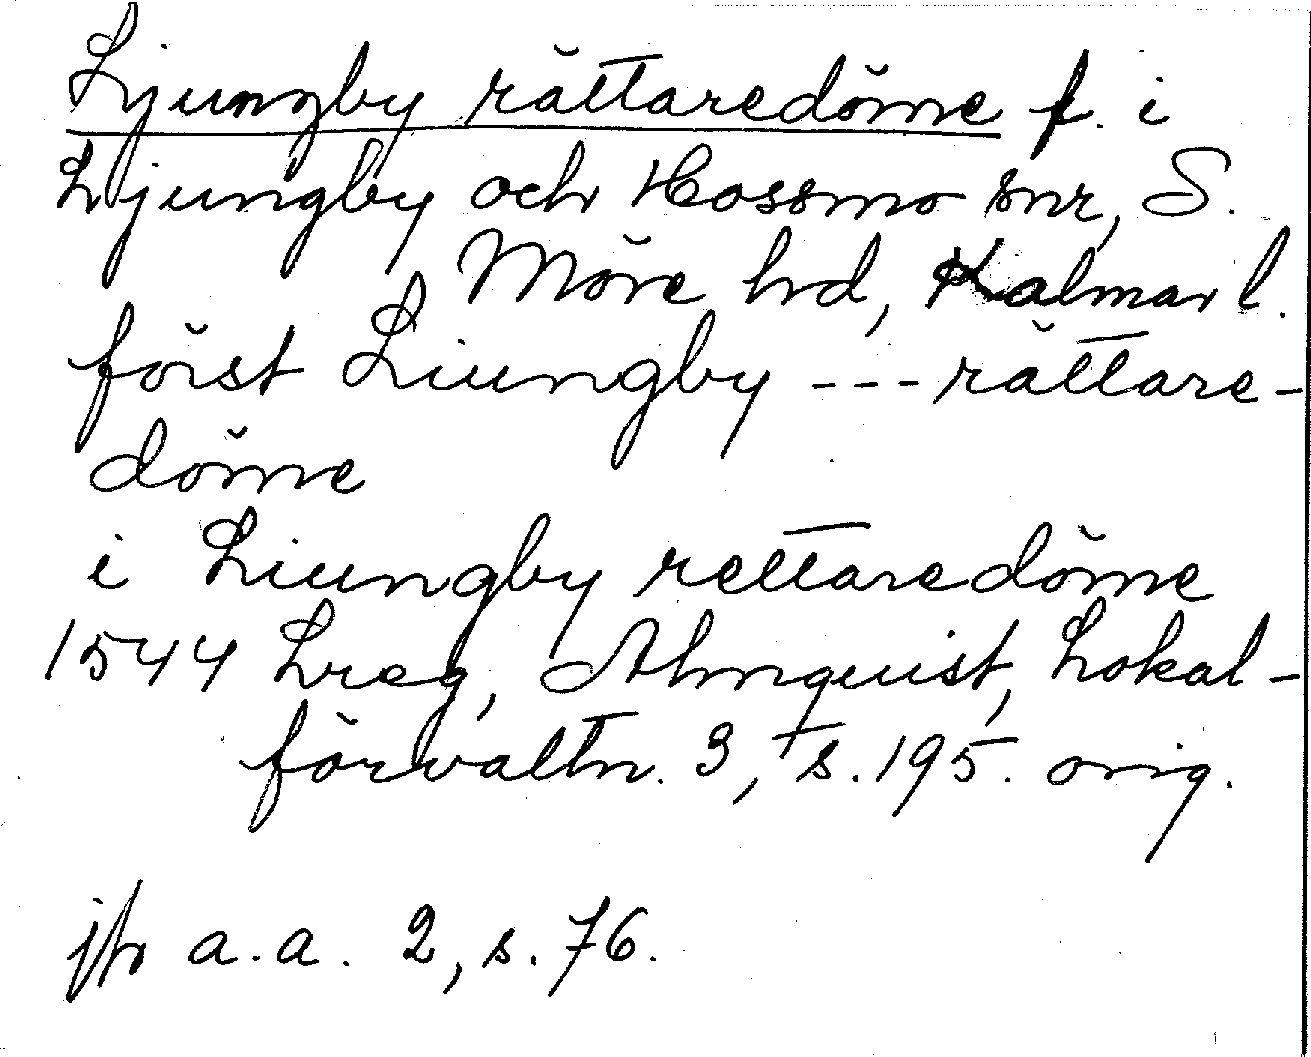 Ljungby rättaredöme f. i
Ljungby och Hossmo snr, S.
Möre hd, Kalmar l.
först Liungby --- rättare-
döme
i Liungby rettaredöme
1544 Lreg, Almquist, Lokal-
förvaltn. 3, s. 195. orig.
jfr a.a. 2, s. 76.